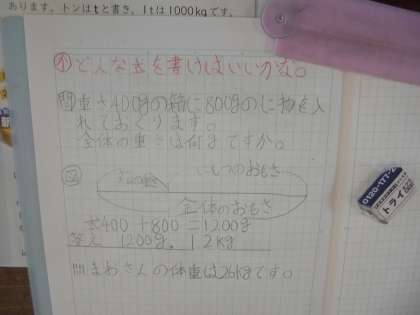 あります。トンはtと書き、1tは1000kgです。
どんな式を書けばいいかな。
問重さ400gの箱に800gのに物を入
れておくります。
全体の重さは何gですか。
図
にもつのおもさ
全体のおもさ
式400+800=1200g
答え 1200g. 1.2kg
まわさんの体重は26kgです。
0120-177-2
トライ